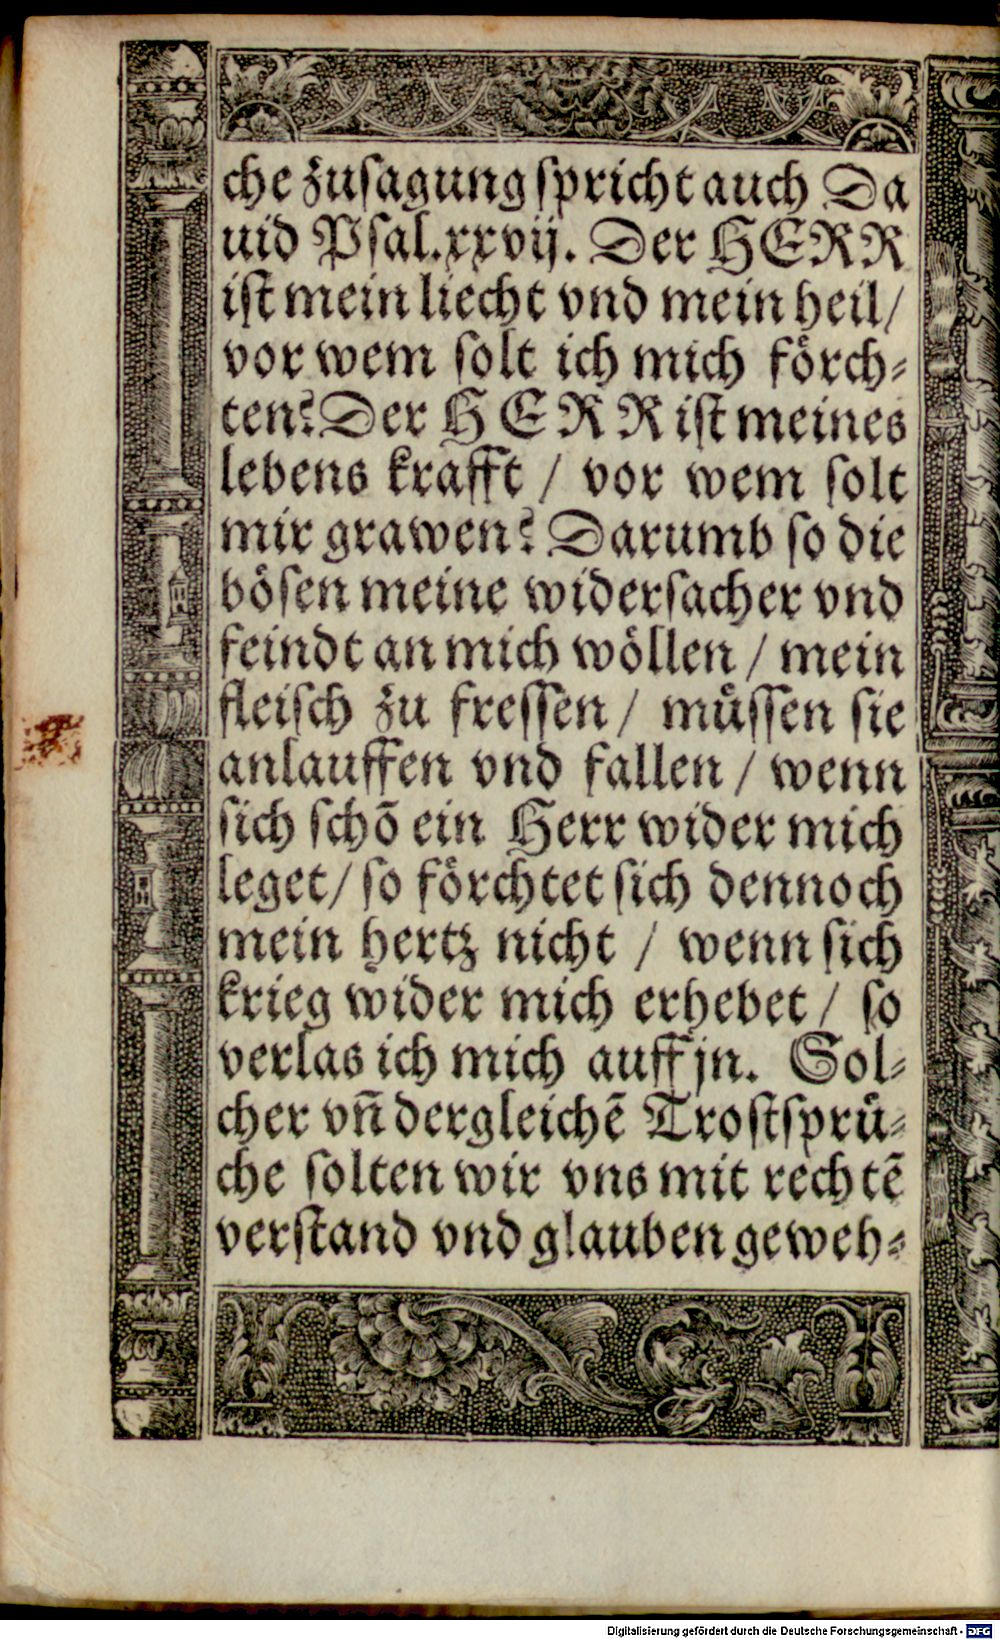 che zuſagung ſpricht auch Da
uid Pſal. xxvij. Der HERR
iſt mein liecht vnd mein heil /
vor wem ſolt ich mich förch⸗
ten? Der HERR iſt meines
lebens krafft / vor wem ſolt
mir grawen? Darumb ſo die
böſen meine widerſacher vnd
feindt an mich wöllen / mein
fleiſch zu freſſen / müſſen ſie
anlauffen vnd fallen / wenn
ſich ſchõ ein Herr wider mich
leget / ſo förchtet ſich dennoch
mein hertz nicht / wenn ſich
krieg wider mich erhebet / ſo
verlas ich mich auff jn. Sol⸗
cher vñ dergleichẽ Troſtſprü⸗
che ſolten wir vns mit rechtẽ
verſtand vnd glauben geweh⸗
Digitalisierung gefördert durch die Deutsche Forschungsgemeinschaft - DFG